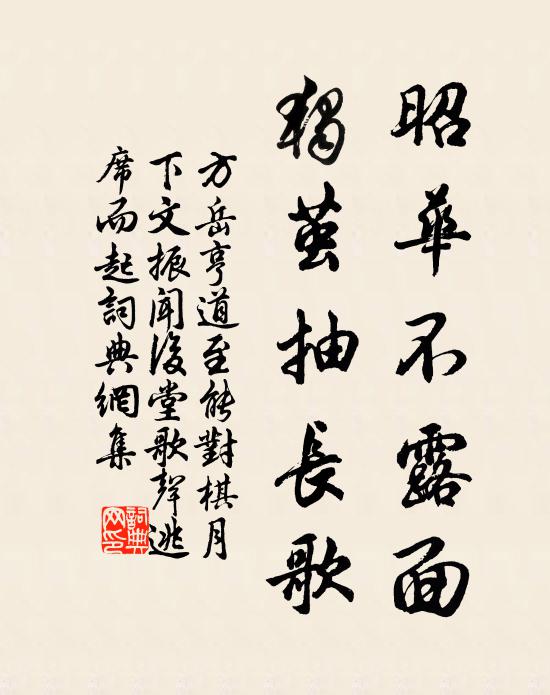 昭華不露面
獨茧抽長歌
方岳亨道至能對棋月
下文振聞後堂歌聲逃
席而起詞典網集
詞典網印